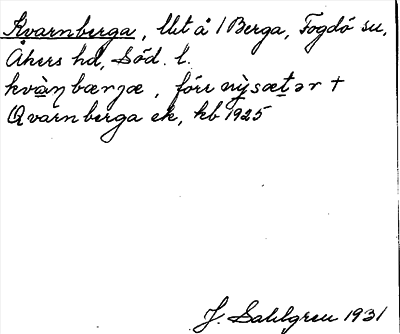 Kvarnberga, llt å 1 Berga, Fogdö sn,
Åkers hd, Söd. l.
kvàṇbærjæ, förr nỳsætər †
Qvarnberga ek, kb 1925
J. Sahlgren 1931